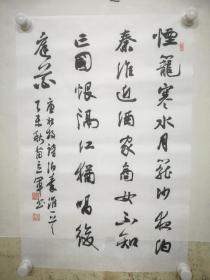 煙籠寒水月籠沙夜泊
秦淮近酒家商女不知
亡國恨隔江猶唱後
庭花
唐杜牧詩泊秦淮一首
乙未秋